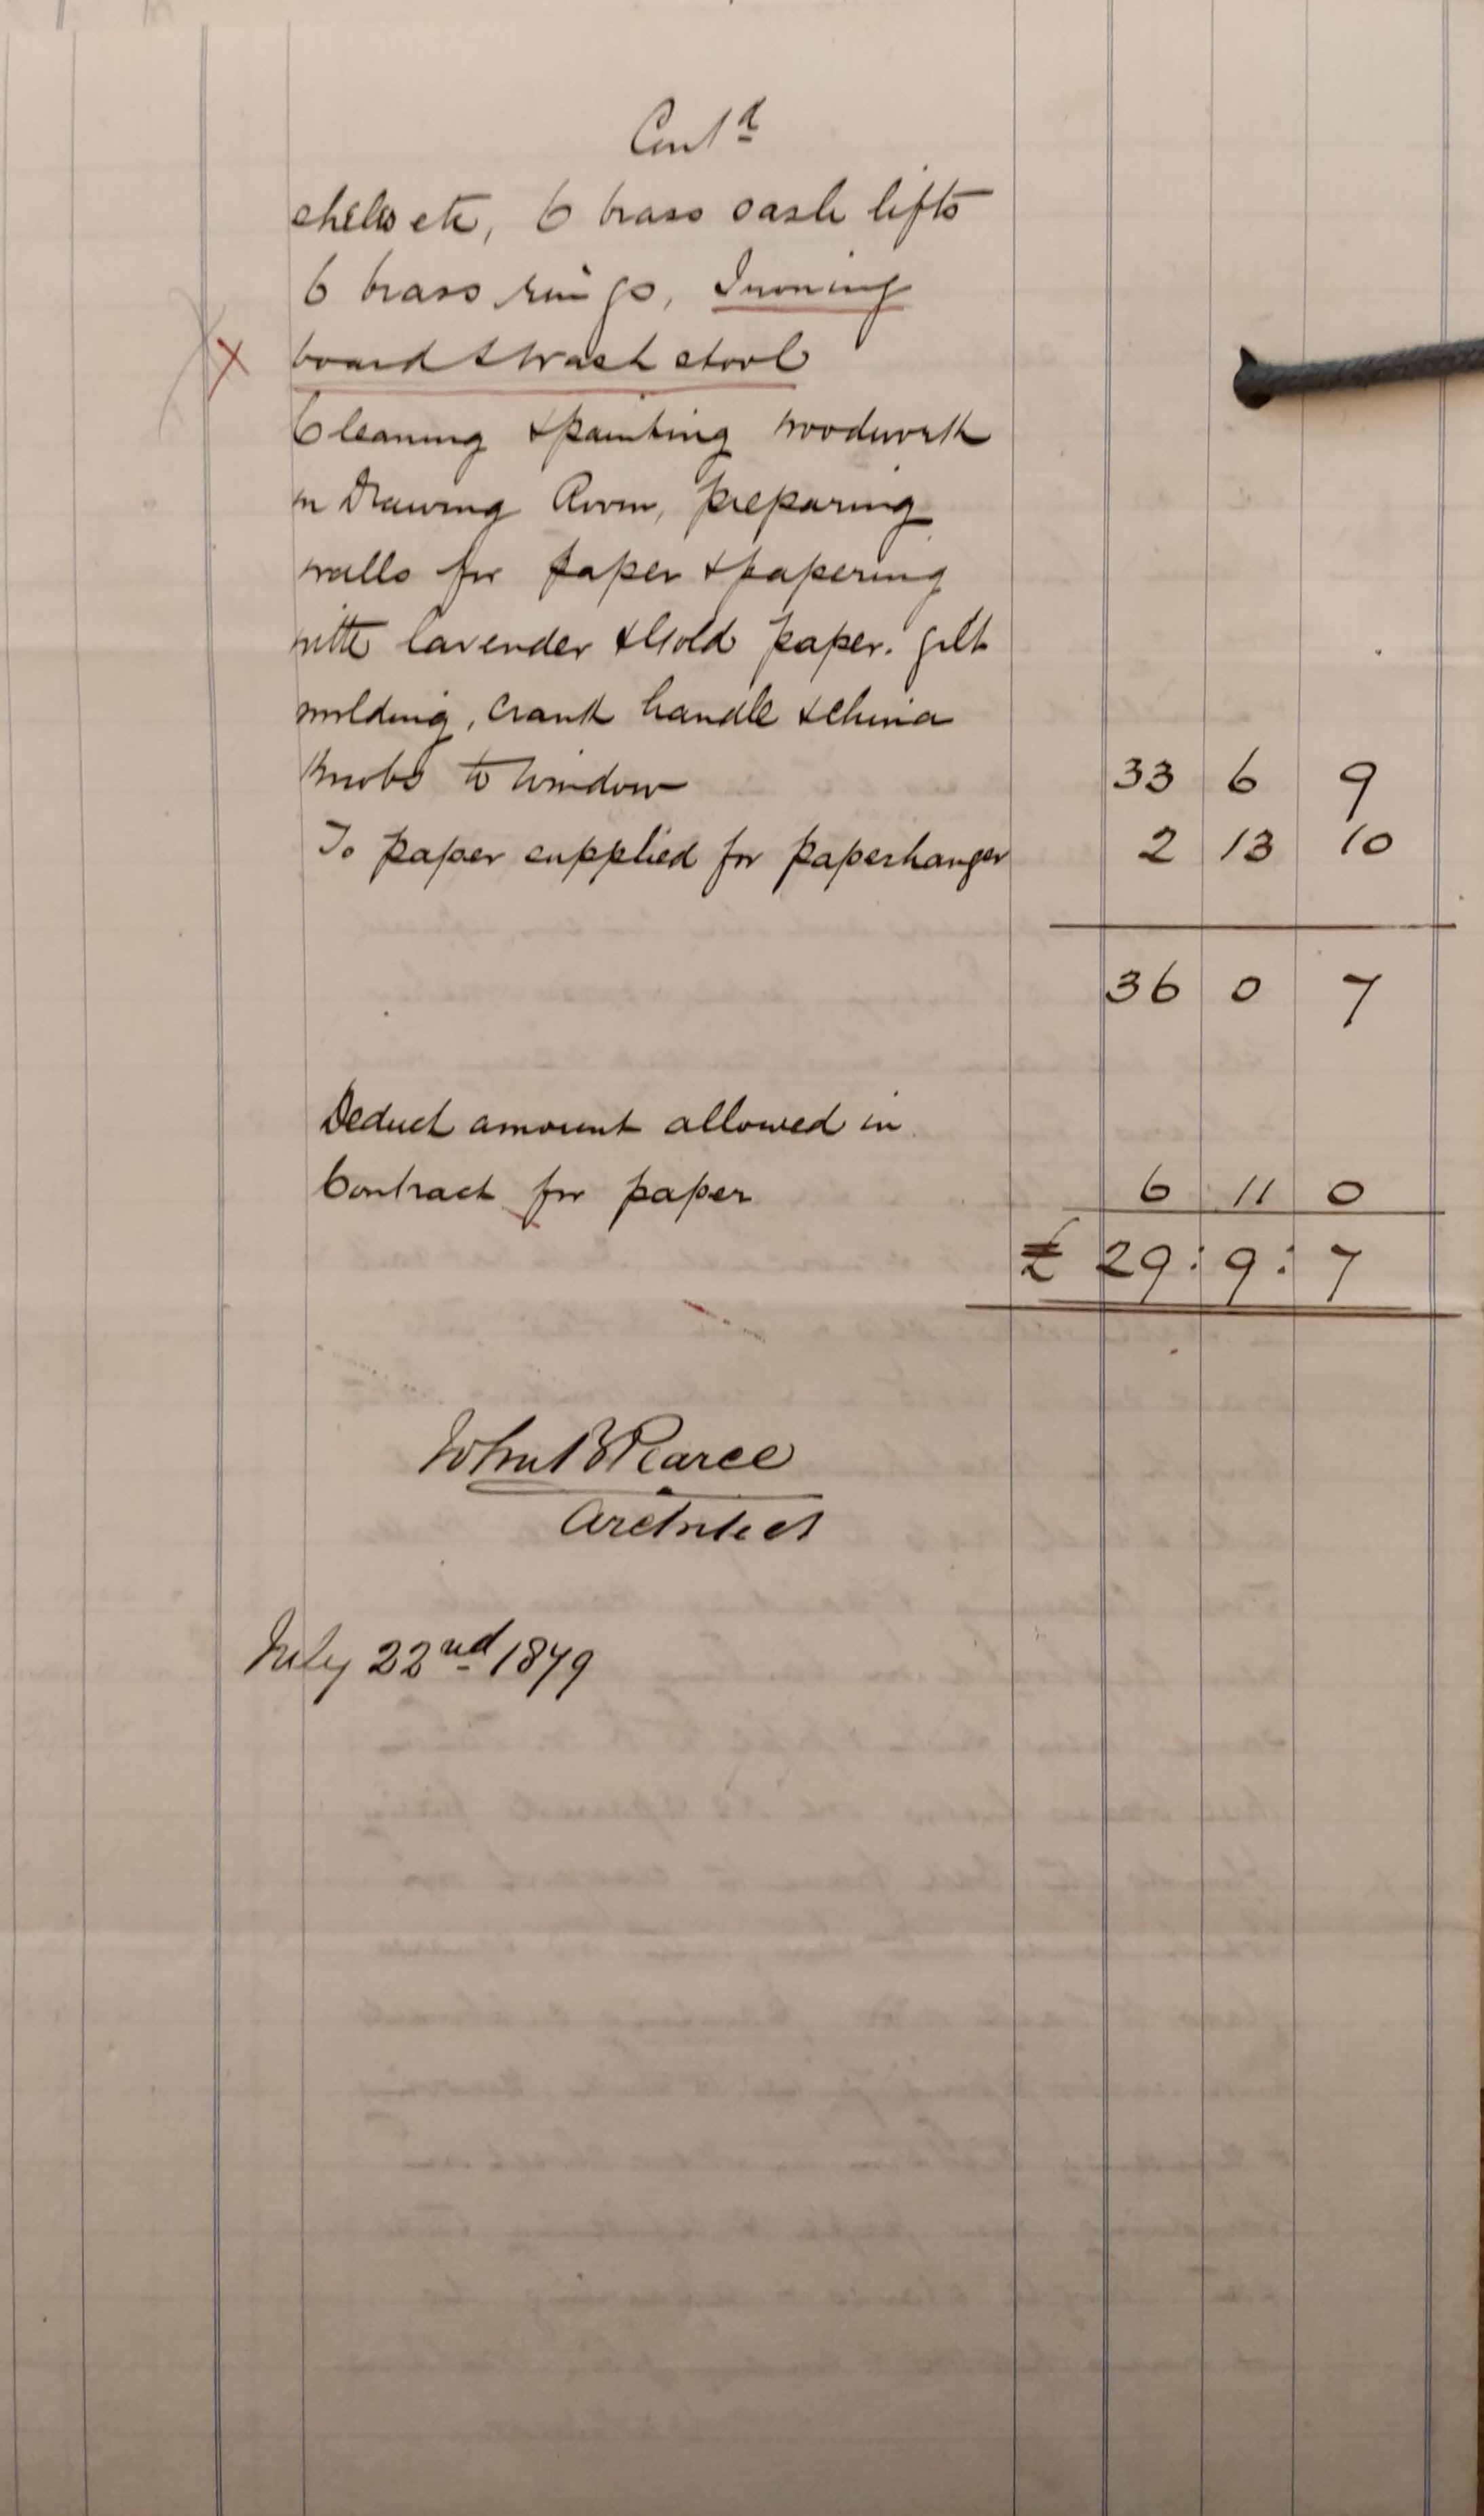 Cont<sup>d</sup>
shelves etc, 6 brass sash lifts
6 brass rings, Ironing
x board & wash stool
Cleaning & painting woodwork
in Drawing Room, preparing
walls for paper & papering
with lavender & Gold paper. gilt
molding, crank handle & china
knobs to window 33 6 9
To paper supplied for paperhanger 2 13 10
36 0 7
Deduct amount allowed in
Contract for paper 6 11 0
£ 29 : 9 : 7
John B Pearce
Architect
July 22<sup>nd</sup> 1879